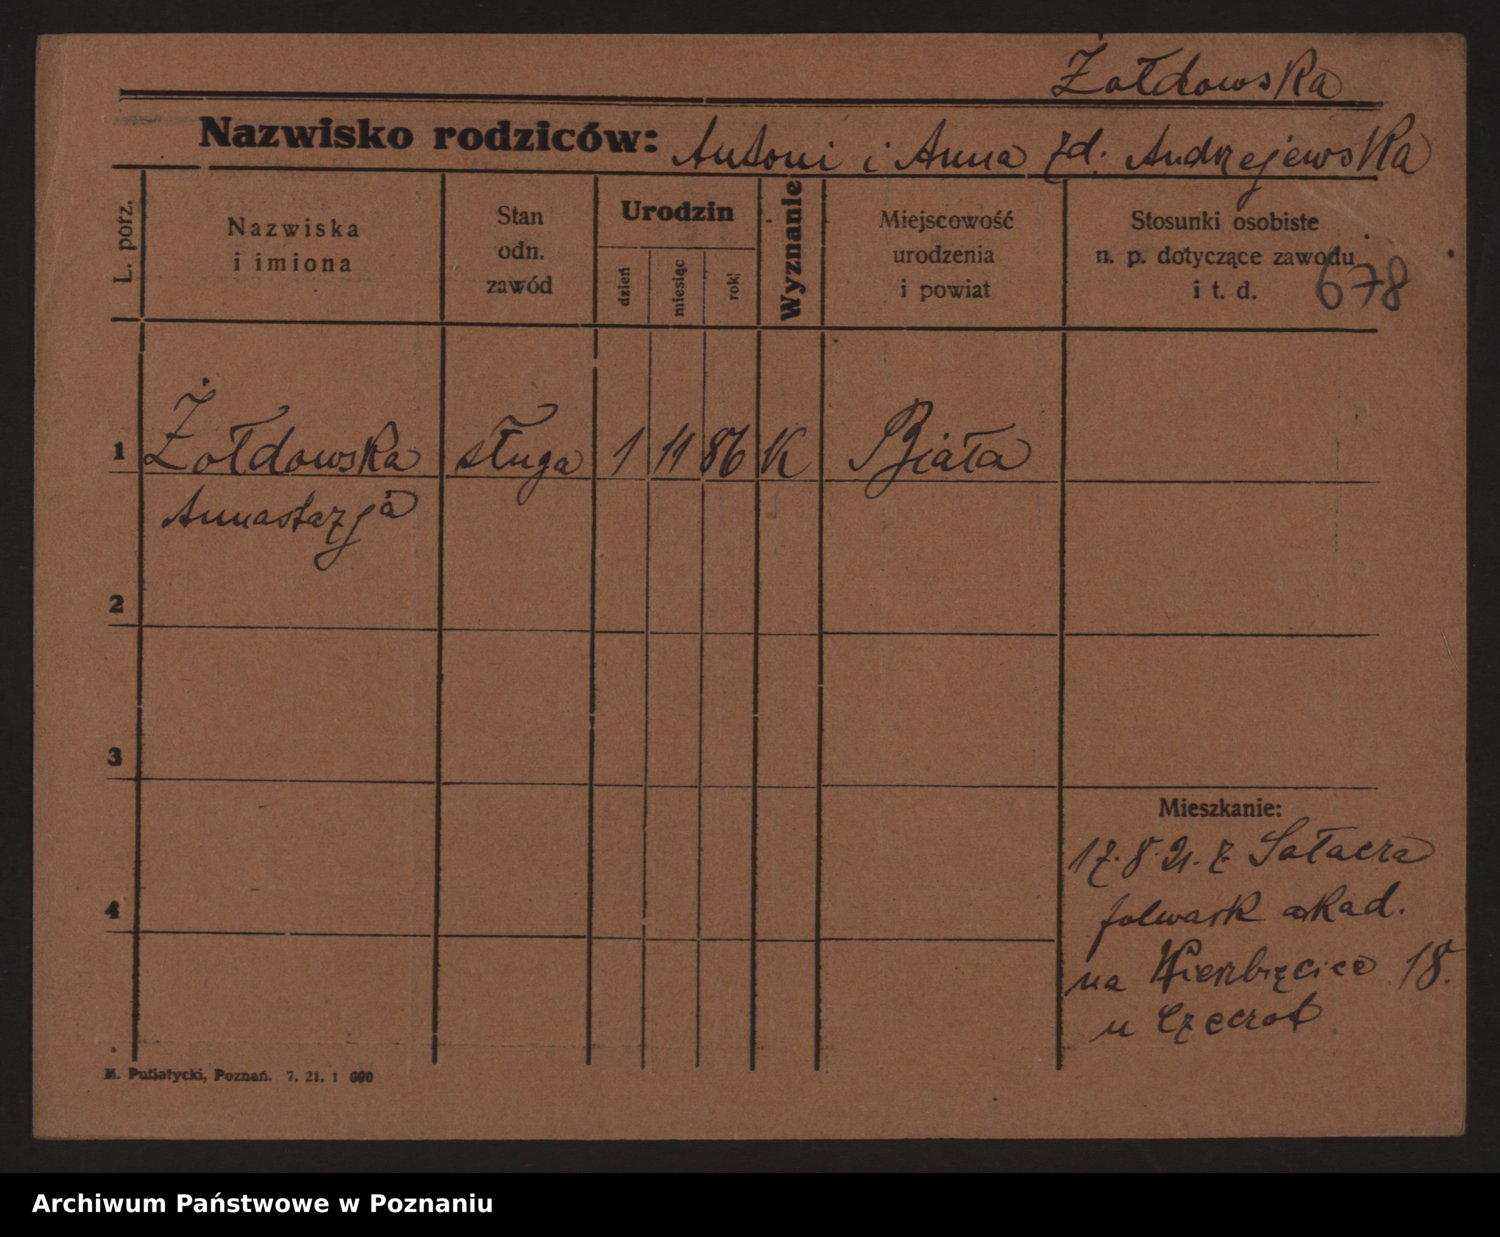 Żołdowska
Nazwisko rodziców: Antoni i Anna zd. Andrzejewska
L. porz.
Nazwiska
i imiona
Stan
odn.
zawód
Urodzin
dzień
miesiąc
rok
Wyznanie
Miejscowość
urodzenia
i powiat
Stosunki osobiste
n. p. dotyczące zawodu
i t. d.
678
1 Żołdowska sługa 1 11 86 K Biała
Annastazja
2
3
Mieszkanie:
17.8.21. z Sołacza
folwark akad.
4
na Wierzbięcice 18.
u
M. Putiatycki, Poznań. 7. 21. 1 000
Archiwum Państwowe w Poznaniu